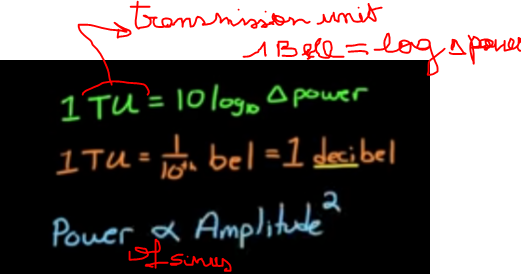 transmission unit
1 Bell = log Δ power
1 TU = 10 log₁₀ Δ power
1 TU = 1/10th bel = 1 decibel
Power ∝ Amplitude²
of sinus